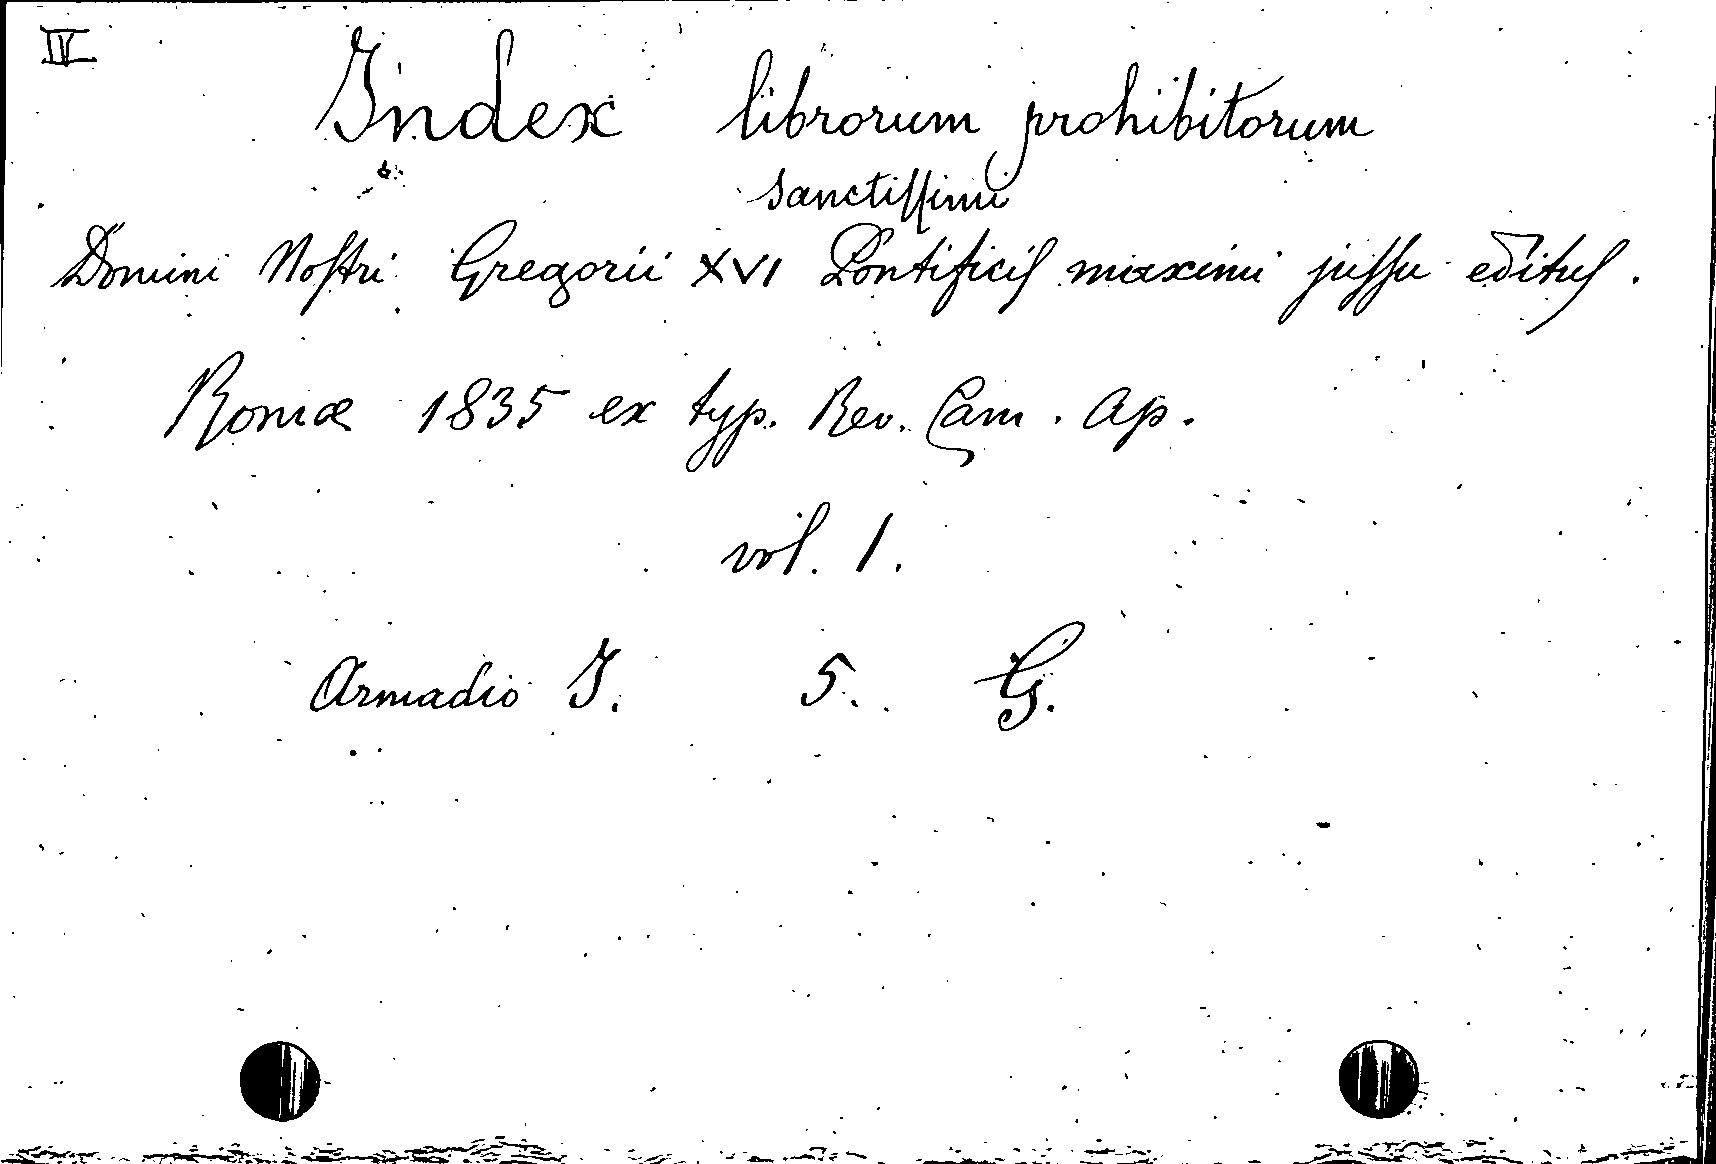 IV
Index librorum prohibitorum
Sanctissimi
Domini Nostri Gregorii XVI Pontificis maximi jussu editus.
Romæ 1835 ex typ. Rev. Cam. Ap.
vol. 1.
Armadio I. 5. G.